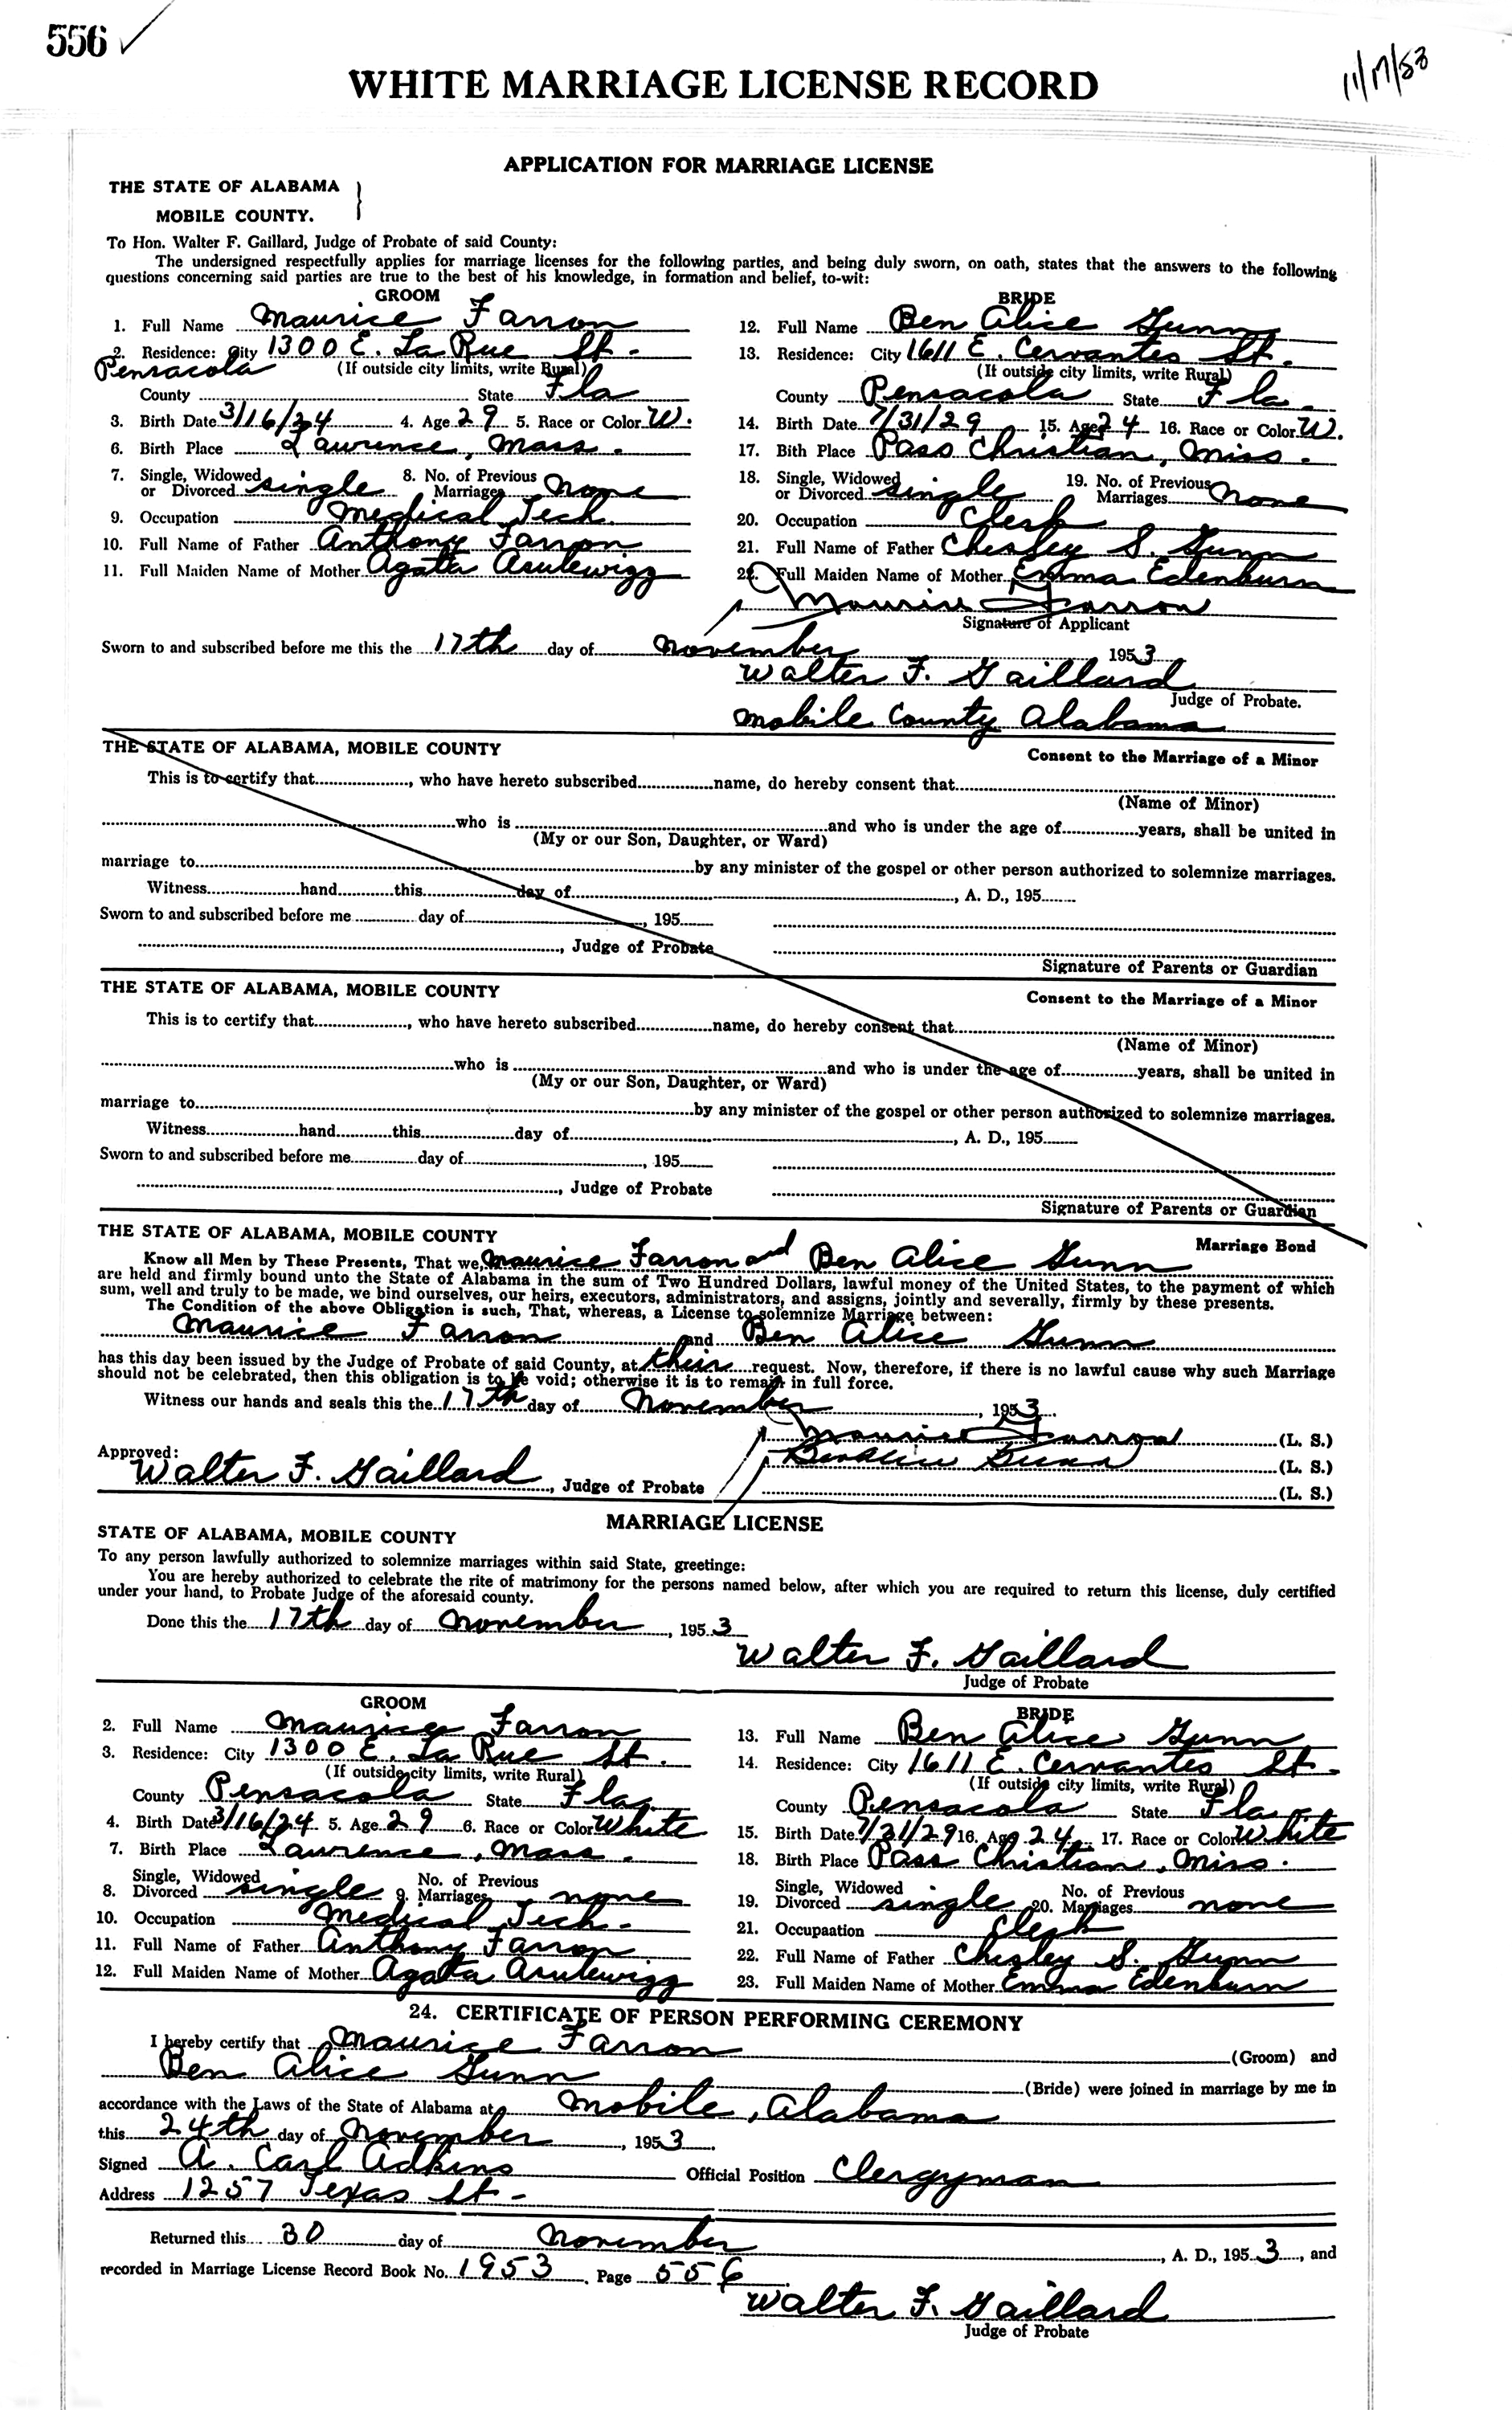 556 ✓
11/17/53
WHITE MARRIAGE LICENSE RECORD
APPLICATION FOR MARRIAGE LICENSE
THE STATE OF ALABAMA }
MOBILE COUNTY.
To Hon. Walter F. Gaillard, Judge of Probate of said County:
The undersigned respectfully applies for marriage licenses for the following parties, and being duly sworn, on oath, states that the answers to the following
questions concerning said parties are true to the best of his knowledge, in formation and belief, to-wit:
GROOM
1. Full Name Maurice Farron
2. Residence: City 1300 E. La Rue St.
Pensacola (If outside city limits, write Rural)
County State Fla
3. Birth Date 3/16/24 4. Age 29 5. Race or Color W.
6. Birth Place Lawrence, Mass.
7. Single, Widowed or Divorced single 8. No. of Previous Marriages none
9. Occupation Medical Tech.
10. Full Name of Father Anthony Farron
11. Full Maiden Name of Mother Agata
BRIDE
12. Full Name Ben Alice Gunn
13. Residence: City 1611 E. Cervantes St.
(If outside city limits, write Rural)
County Pensacola State Fla.
14. Birth Date 7/31/29 15. Age 24 16. Race or Color W.
17. Bith Place Pass Christian, Miss.
18. Single, Widowed or Divorced single 19. No. of Previous Marriages none
20. Occupation Clerk
21. Full Name of Father Chesley S. Gunn
22. Full Maiden Name of Mother Emma Edenburn
Maurice Farron
Signature of Applicant
Sworn to and subscribed before me this the 17th day of November 1953
Walter F. Gaillard
Judge of Probate.
Mobile County Alabama
THE STATE OF ALABAMA, MOBILE COUNTY Consent to the Marriage of a Minor
This is to certify that, who have hereto subscribed name, do hereby consent that
(Name of Minor)
who is and who is under the age of years, shall be united in
(My or our Son, Daughter, or Ward)
marriage to by any minister of the gospel or other person authorized to solemnize marriages.
Witness hand this day of, A. D., 195
Sworn to and subscribed before me day of, 195
, Judge of Probate
Signature of Parents or Guardian
THE STATE OF ALABAMA, MOBILE COUNTY Consent to the Marriage of a Minor
This is to certify that, who have hereto subscribed name, do hereby consent that
(Name of Minor)
who is and who is under the age of years, shall be united in
(My or our Son, Daughter, or Ward)
marriage to by any minister of the gospel or other person authorized to solemnize marriages.
Witness hand this day of, A. D., 195
Sworn to and subscribed before me day of, 195
, Judge of Probate
Signature of Parents or Guardian
THE STATE OF ALABAMA, MOBILE COUNTY Marriage Bond
Know all Men by These Presents, That we, Maurice Farron and Ben Alice Gunn
are held and firmly bound unto the State of Alabama in the sum of Two Hundred Dollars, lawful money of the United States, to the payment of which
sum, well and truly to be made, we bind ourselves, our heirs, executors, administrators, and assigns, jointly and severally, firmly by these presents.
The Condition of the above Obligation is such, That, whereas, a License to solemnize Marriage between:
Maurice Farron and Ben Alice Gunn
has this day been issued by the Judge of Probate of said County, at their request. Now, therefore, if there is no lawful cause why such Marriage
should not be celebrated, then this obligation is to be void; otherwise it is to remain in full force.
Witness our hands and seals this the 17th day of November, 1953
Maurice Farron (L. S.)
Ben Alice Gunn (L. S.)
(L. S.)
Approved:
Walter F. Gaillard, Judge of Probate
MARRIAGE LICENSE
STATE OF ALABAMA, MOBILE COUNTY
To any person lawfully authorized to solemnize marriages within said State, greetinge:
You are hereby authorized to celebrate the rite of matrimony for the persons named below, after which you are required to return this license, duly certified
under your hand, to Probate Judge of the aforesaid county.
Done this the 17th day of November, 1953
Walter F. Gaillard
Judge of Probate
GROOM
2. Full Name Maurice Farron
3. Residence: City 1300 E. La Rue St.
(If outside city limits, write Rural)
County Pensacola State Fla.
4. Birth Date 3/16/24 5. Age 29 6. Race or Color White
7. Birth Place Lawrence, Mass.
8. Single, Widowed Divorced single 9. No. of Previous Marriages none
10. Occupation Medical Tech.
11. Full Name of Father Anthony Farron
12. Full Maiden Name of Mother Agata
BRIDE
13. Full Name Ben Alice Gunn
14. Residence: City 1611 E. Cervantes St.
(If outside city limits, write Rural)
County Pensacola State Fla
15. Birth Date 7/31/29 16. Age 24 17. Race or Color White
18. Birth Place Pass Christian, Miss.
19. Single, Widowed Divorced single 20. No. of Previous Marriages none
21. Occupaation Clerk
22. Full Name of Father Chesley S. Gunn
23. Full Maiden Name of Mother Emma Edenburn
24. CERTIFICATE OF PERSON PERFORMING CEREMONY
I hereby certify that Maurice Farron (Groom) and
Ben Alice Gunn (Bride) were joined in marriage by me in
accordance with the Laws of the State of Alabama at Mobile, Alabama
this 24th day of November, 1953.
Signed A. Carl Adkins Official Position Clergyman
Address 1257 Texas St.
Returned this 30 day of November, A. D., 1953, and
recorded in Marriage License Record Book No. 1953, Page 556
Walter F. Gaillard
Judge of Probate